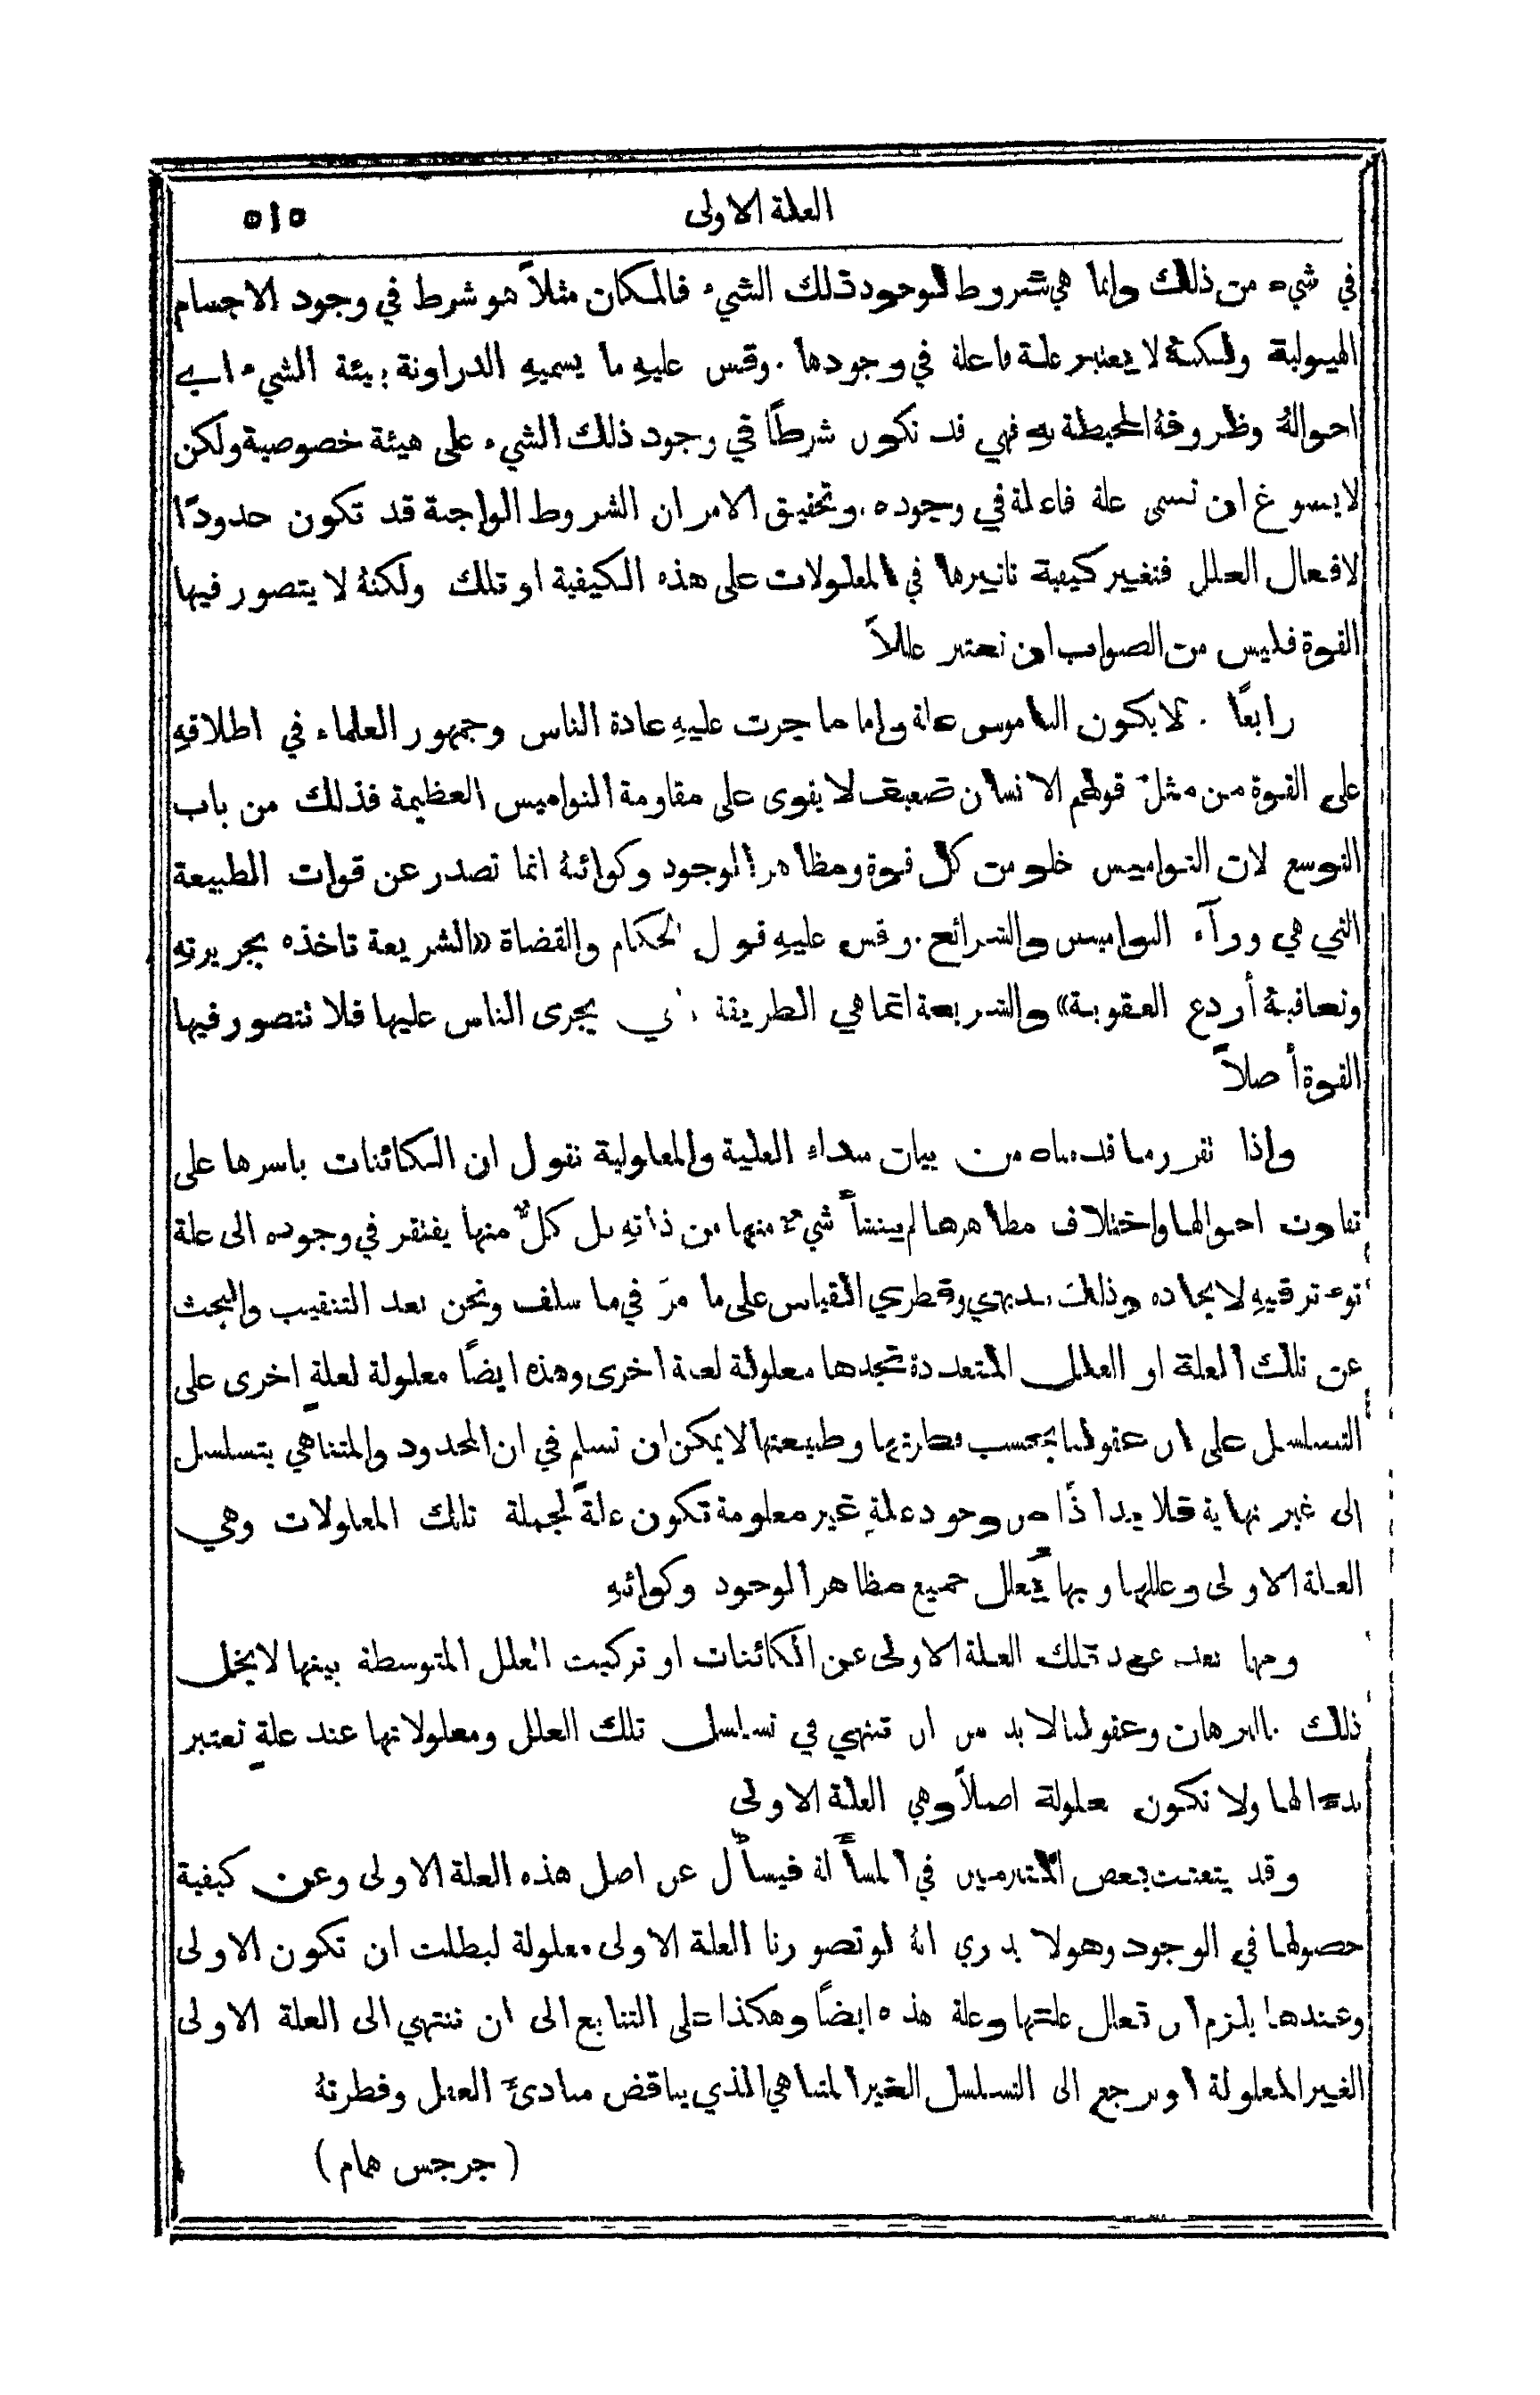 العلة الاولى ٥١٥
في شيء من ذلك وانما هي شروط لوجود ذلك الشيء فالمكان مثلاً هو شرط في وجود الاجسام
الهيولية ولكنهُ لا يعتبر علة فاعلة في وجودها . وقس عليهِ ما يسميهِ الدراونة بيئة الشيء اي
احوالهُ وظروفهُ المحيطة بهِ فهي قد تكون شرطًا في وجود ذلك الشيء على هيئة خصوصية ولكن
لا يسوغ ان تسمى علة فاعلة في وجوده . وتحقيق الامر ان الشروط الواجبة قد تكون حدودًا
لافعال العلل فتغير كيفية تاثيرها في المعلولات على هذه الكيفية او تلك ولكنهُ لا يتصور فيها
القوة فليس من الصواب ان تعتبر عللاً
رابعًا . لا يكون الناموس علة واما ما جرت عليهِ عادة الناس وجمهور العلماء في اطلاقهِ
على القوة من مثل قولهم الانسان ضعيف لا يقوى على مقاومة النواميس العظيمة فذلك من باب
التوسع لان النواميس خلو من كل قوة ومظاهر الوجود وكوائنهُ انما تصدر عن قوات الطبيعة
التي هي ورآء النواميس والشرائع . وقس عليهِ قول الحكام والقضاة «الشريعة تاخذه بجريرتهِ
وتعاقبهُ أردع العقوبة» والشريعة انما هي الطريقة التي يجرى الناس عليها فلا تتصور فيها
القوة أصلاً
واذا تقرر ما قدمناه من بيان مبداء العلية والمعلولية نقول ان الكائنات باسرها على
تفاوت احوالها واختلاف مظاهرها لم ينشأ شيءٌ منها من ذاتهِ بل كلٌّ منها يفتقر في وجوده الى علة
توءثر فيهِ لايجاده وذلك بديهي وفطري القياس على ما مرَّ في ما سلف ونحن بعد التنقيب والبحث
عن تلك العلة او العلل المتعددة نجدها معلولة لعلة اخرى وهذه ايضًا معلولة لعلةٍ اخرى على
التسلسل على ان عقولنا بحسب فطارتها وطبيعتها لا يمكن ان تسلم في ان المحدود والمتناهي يتسلسل
الى غير نهاية فلا بد اذًا من وجود علةٍ غير معلومة تكون علةً لجملة تلك المعلولات وهي
العلة الاولى وعللها وبها يُعلل جميع مظاهر الوجود وكوائنهِ
ومهما بعد عهد تلك العلة الاولى عن الكائنات او تركبت العلل المتوسطة بينها لا يخل
ذلك بالبرهان وعقولنا لا بد من ان تنتهي في تسلسل تلك العلل ومعلولاتها عند علةٍ تعتبر
بدءًا لها ولا تكون معلولة اصلاً وهي العلة الاولى
وقد يتعنت بعض في المسأَلة فيسأَل عن اصل هذه العلة الاولى وعن كيفية
حصولها في الوجود وهو لا يدري انهُ لو تصورنا العلة الاولى معلولة لبطلت ان تكون الاولى
وعندها يلزم ان تعلل علتها وعلة هذه ايضًا وهكذا على التتابع الى ان ننتهي الى العلة الاولى
الغير المعلولة او نرجع الى التسلسل الغير المتناهي الذي يناقض مبادئَ العقل وفطرتهُ
( جرجس همام )